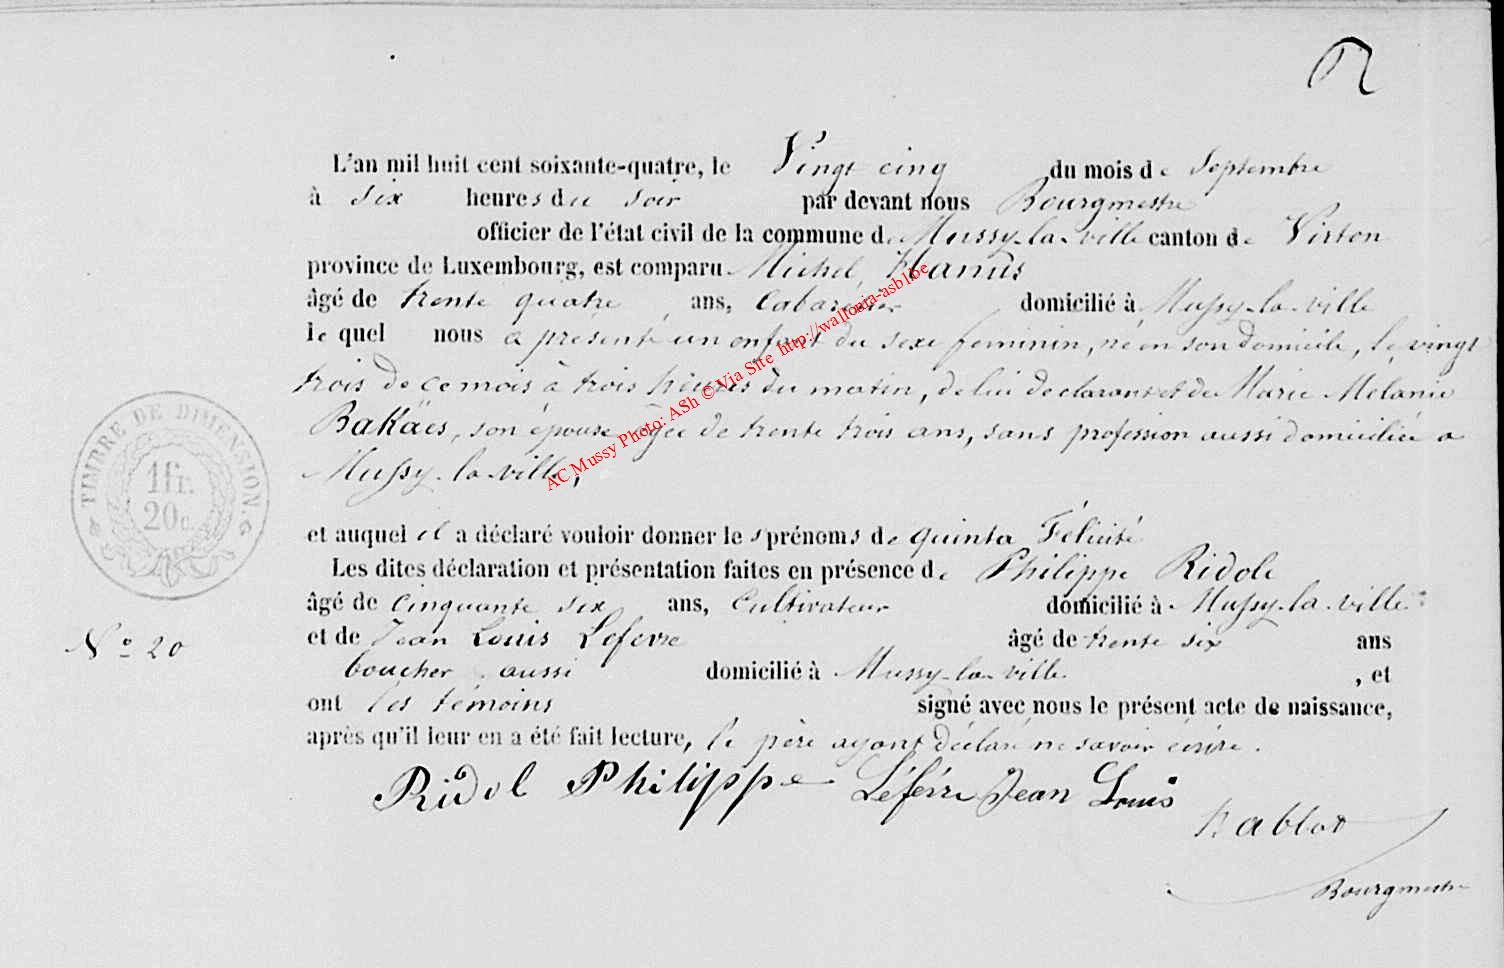 L'an mil huit cent soixante-quatre, le Vingt cinq du mois de Septembre
à Six heures du soir par devant nous Bourgmestre
officier de l'état civil de la commune de Mussy-la-ville canton de Virton
province de Luxembourg, est comparu Michel Hanus
âgé de trente quatre ans, Cabaretier domicilié à Mussy-la-ville
le quel nous a présenté un enfant du sexe féminin, né en son domicile, le vingt
trois de ce mois à trois heures du matin, de lui déclarant et de Marie Mélanie
son épouse âgée de trente trois ans, sans profession aussi domiciliée à
Mussy-la-ville,
et auquel il a déclaré vouloir donner les prénoms de Quinta Félicité
Les dites déclaration et présentation faites en présence de Philippe Ridole
âgé de Cinquante six ans, Cultivateur domicilié à Mussy-la-ville
et de Jean Louis Lefevre âgé de trente six ans
boucher aussi domicilié à Mussy-la-ville , et
ont les témoins signé avec nous le présent acte de naissance,
après qu'il leur en a été fait lecture, le père ayant déclaré ne savoir écrire.
Ridol Philippe Léfévre Jean Louis
Bourgmestre
TIMBRE DE DIMENSION.
1fr.
20c.
N° 20
AC Mussy Photo: ASh © Via Site http://wallonia-asbl.be